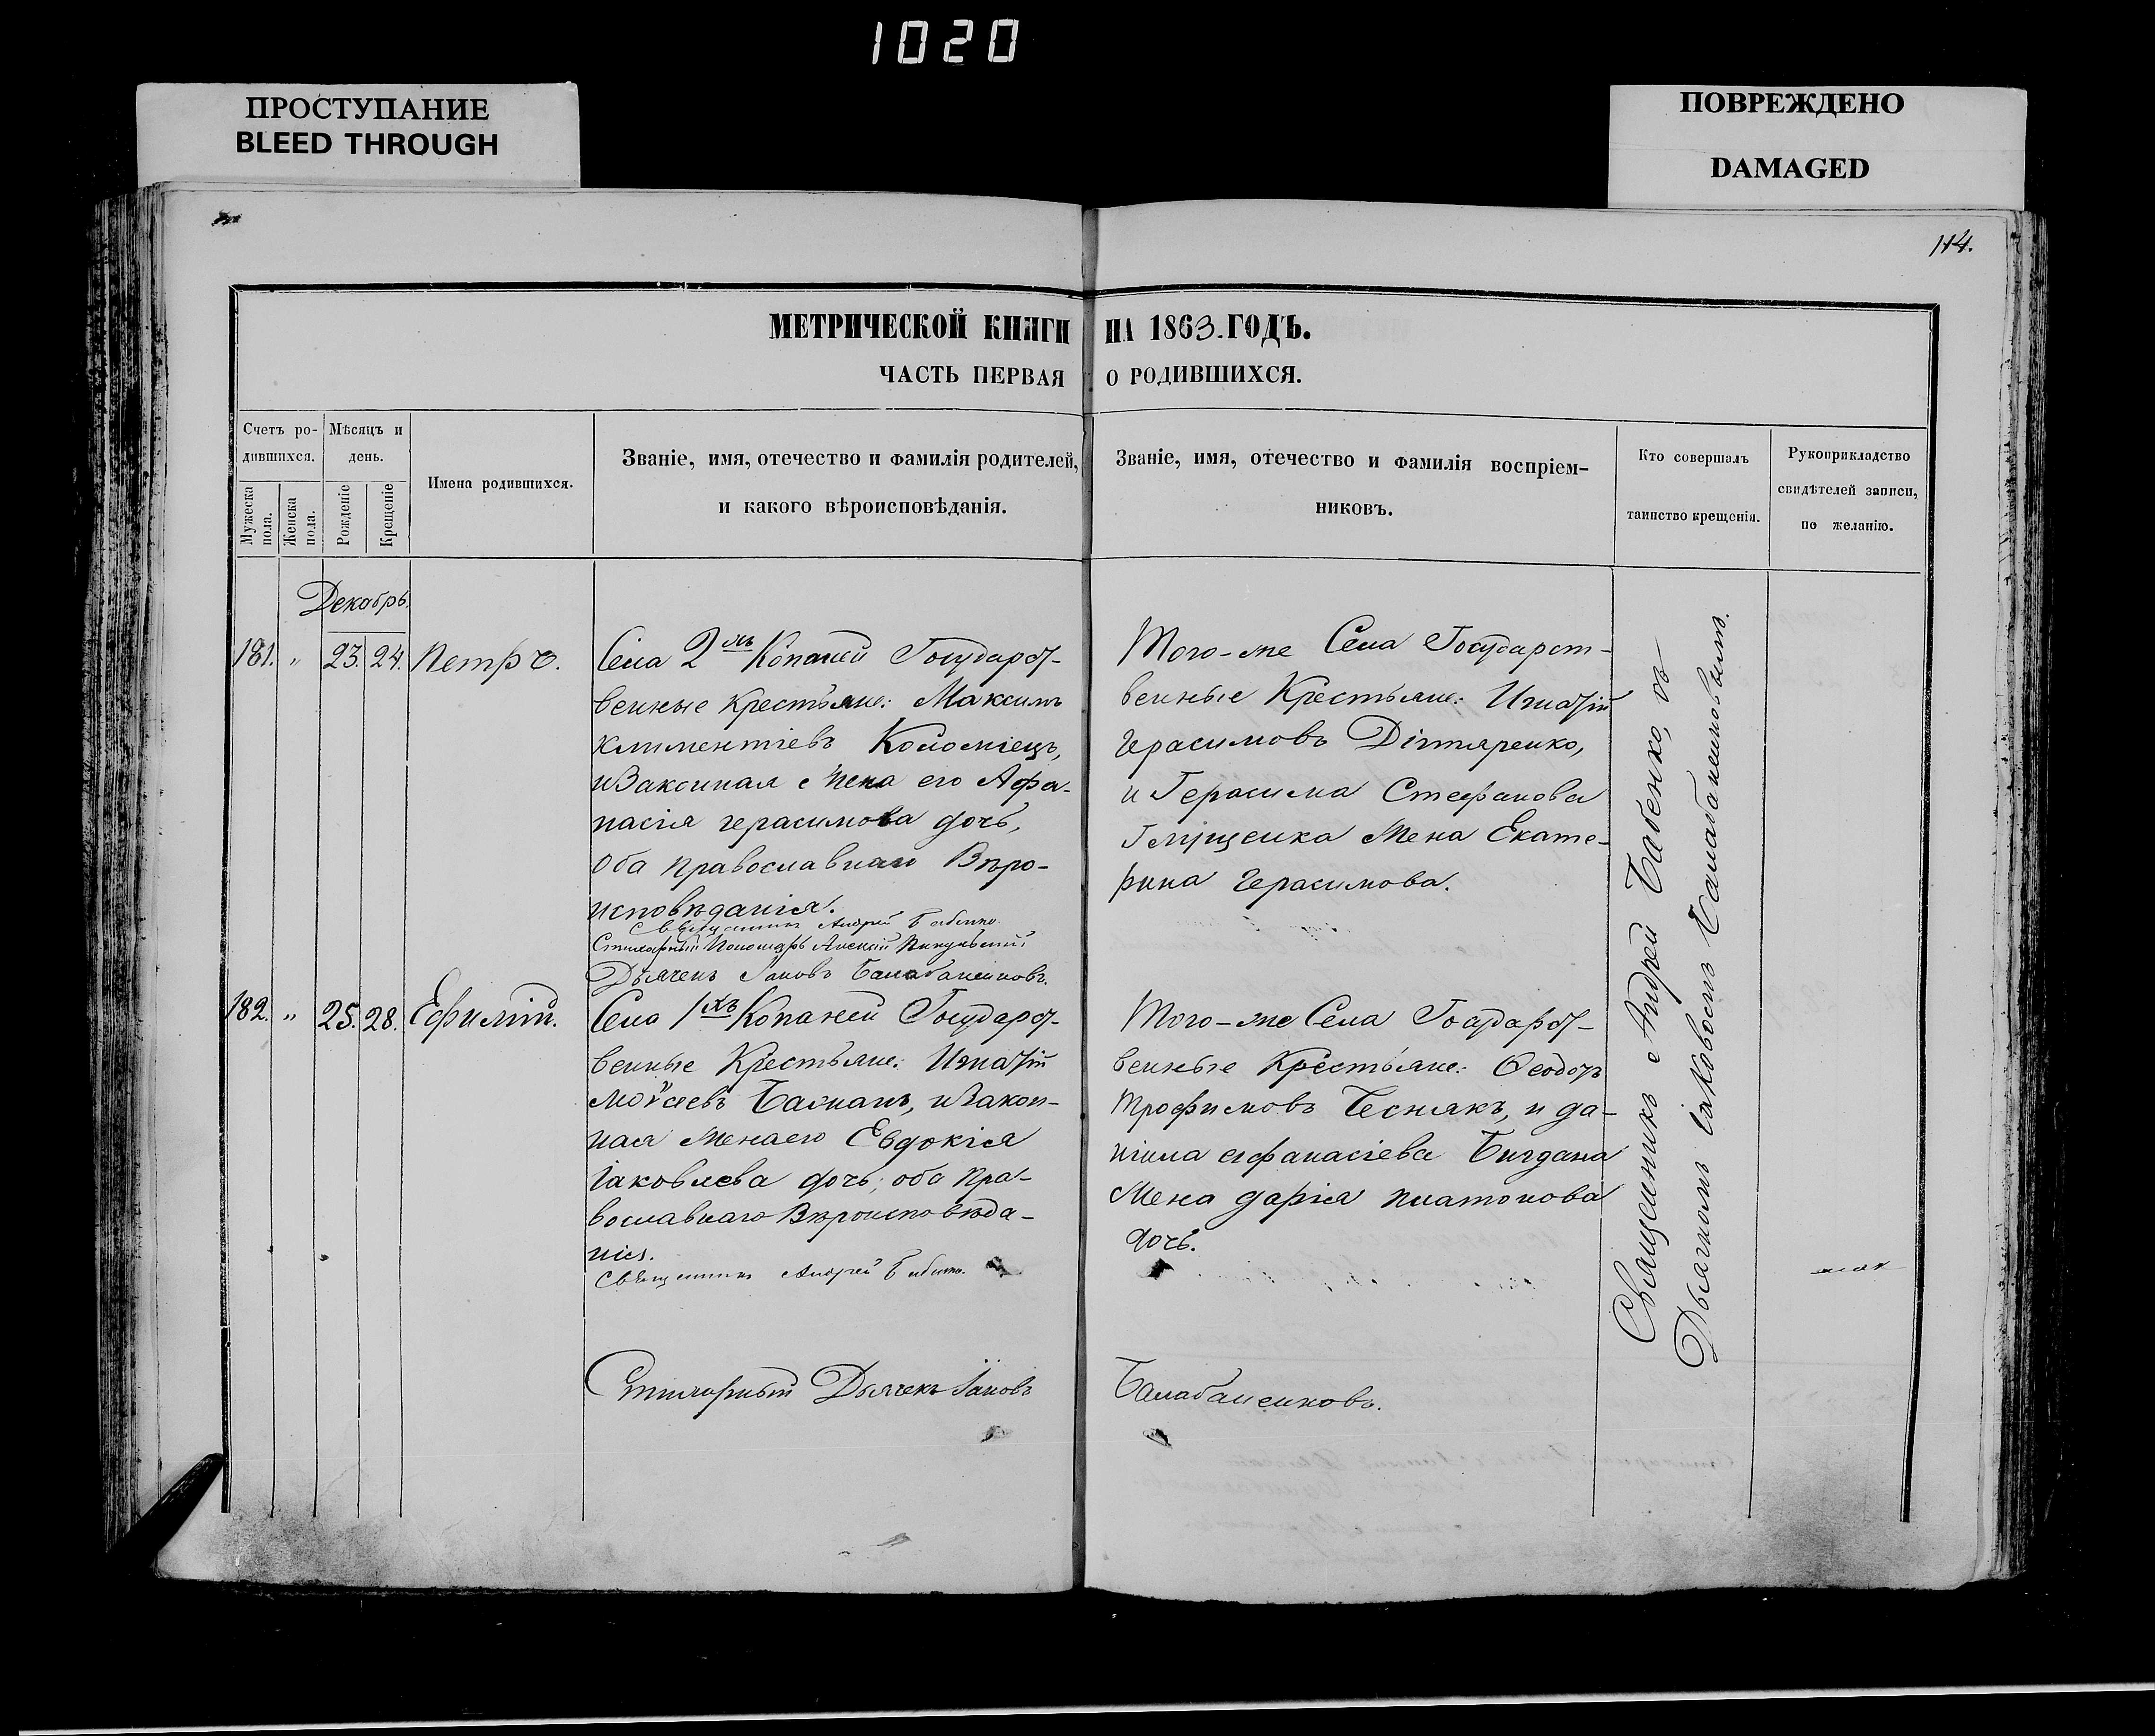 1020
ПРОСТУПАНИЕ
BLEED THROUGH
ПОВРЕЖДЕНО
DAMAGED
114.
МЕТРИЧЕСКОЙ КНИГИ НА 1863. ГОДЪ.
ЧАСТЬ ПЕРВАЯ О РОДИВШИХСЯ.
Счетъ ро-
дившихся.
Мужеска
пола.
Женска
пола.
Мѣсяцъ и
день.
Рожденіе
Крещеніе
Имена родившихся.
Званіе, имя, отечество и фамилія родителей,
и какого вѣроисповѣданія.
Званіе, имя, отечество и фамилія воспріем-
никовъ.
Кто совершалъ
таинство крещенія.
Рукоприкладство
свидѣтелей записи,
по желанію.
Декабрь.
181. " 23. 24. Петръ.
Села 2хъ Копаней Государст-
венные Крестьяне: Максимъ
Климентіевъ Коломіецъ,
и Законная Жена его Афа-
насія Герасимова дочь,
Оба Православнаго Вѣро-
исповѣданія.
Священникъ Андрей Бабенко.
Стихарный Пономарь Алексій
Дьячекъ Іаковъ Балабаненковъ.
Того-же Села Государст-
венные Крестьяне: Игнатій
Герасимовъ Дігтяренко,
и Герасима Стефанова
Жена Екате-
рина Герасимова.
182. " 25. 28. Ефимій.
Села 1хъ Копаней Государст-
венные Крестьяне: Игнатій
Моѵсеевъ и Закон-
ная Жена его Евдокія
Іаковлева дочь, оба Пра-
вославнаго Вѣроисповѣда-
нія.
Священникъ Андрей Бабенко.
Того-же Села Государст-
венные Крестьяне: Ѳеодоръ
Трофимовъ Чеснякъ, и Да-
ніила Афанасіева
Жена Дарія Платонова
дочь.
Стихарный Дьячекъ Іаковъ Балабаненковъ.
Священникъ Андрей Бабенко, съ
Дьячкомъ Іаковомъ Балабаненковымъ.